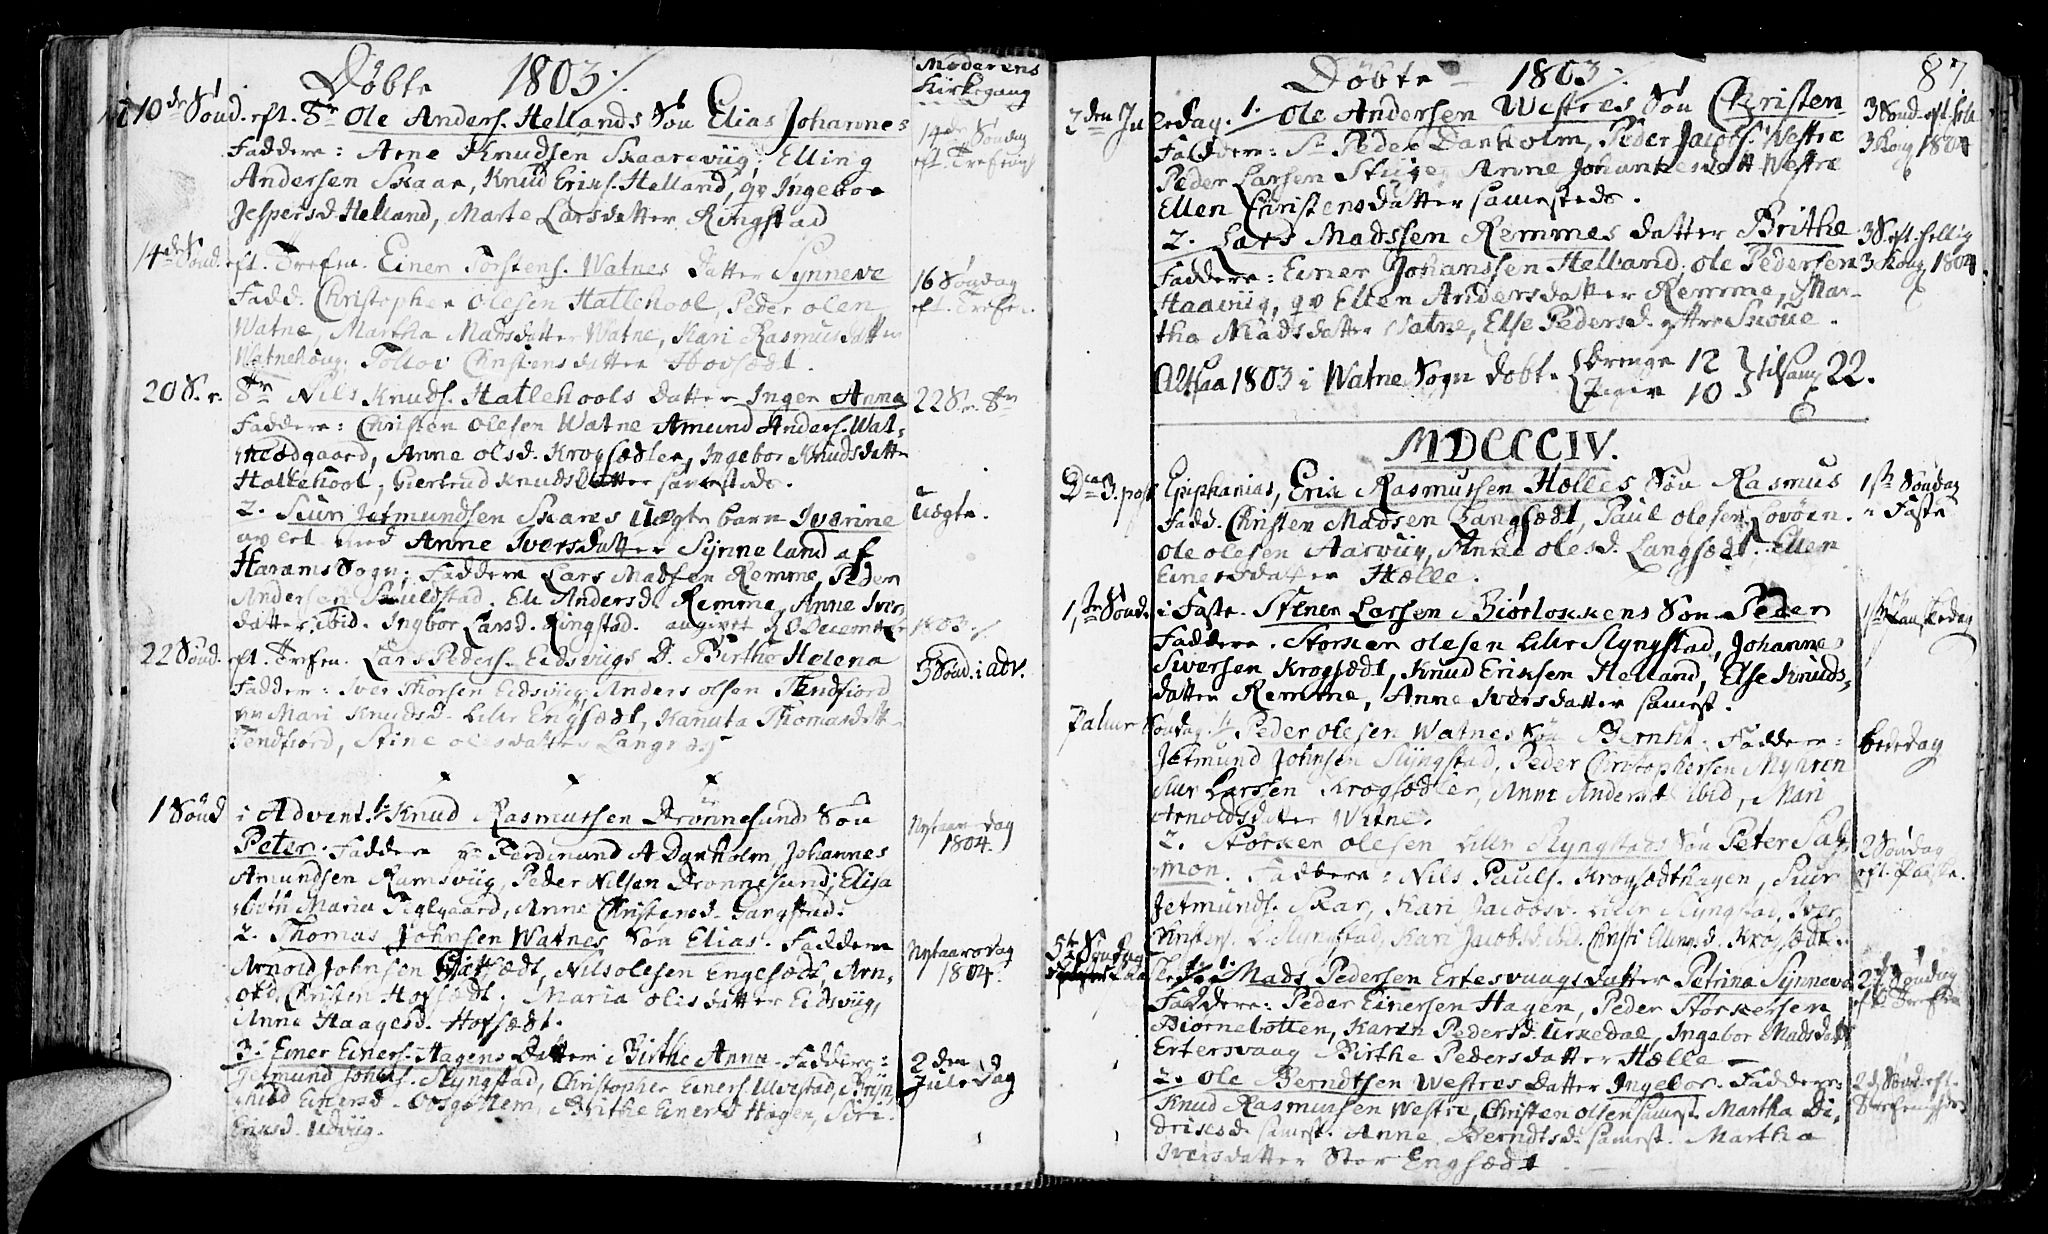 Döbte 1803 /:
Moderens
Kirkegang
10de Sönd. eft. Tr. Ole Anders. Hellands Sön Elias Johannes
Faddere: Arne Knudsen Skaarsviig, Elling
Andersen Skaar, Knud Eriks. Helland, qv Ingebor
Jespersd. Helland, Marte Larsdatter Ringstad
14de Söndag
eft. Trefen.
14de Sönd. eft. Trefen. Einer Torstens. Watnes Datter Synneve
Fadd. Christopher Olesen Hatlehool, Peder Olen
Watne, Martha Madsdatter Watne, Kari Rasmusdatter
Watnehoug, Christensdatter Hovsædt.
16 Söndag
eft. Trefen.
20 S. e. Tr. Nils Knuds. Hatlehools datter Inger Anna
Faddere: Christen Olesen Watne Amund Anders. Wat-
neødgaard, Anne olsd. Krogsædter, Ingebor Knudsdatter
Hatlehool, Giertrud Knudsdatter samesteds.
22 S. e. Tr.
2. Siur Jetmundsen Skares Uægte barn Iverine
avlet med Anne Iversdatter Synneland af
Harams Sogn; Faddere Lars Madsen Remme, Peder
Andersen Skuldstad. Eli Andersd. Remme, Anne Iver,
datter ibid. Ingbor Larsd. Ringstad. angivet d. 8 Decembr 1803 /:
Uægte.
22 Sönd. eft. Trefen. Lars Peders. Eidsviigs D. Birthe Helena
Fadder: Iver Thorsen Eidsviig, Anders olsen Tendfiord
qv Mari Knudsd. Lille Engsædt, Kanuta Thomasdatt
Tendfiord, Stine olesdatter
3 Sönd. i adv.
1 Sönd i Advent. 1. Knud Rasmussen Dronnesunds Sön
Peter. Faddere Ferdinand A Dankolm, Johannes
Amundsen Ramsviig, Peder Nilsen Dronnesund, Elisa
beth Maria Teglgaard, Anne Christensd. Gangstad.
Nytaarsdag
1804.
2. Thomas Johnsen Watnes Sön Elias. Faddere
Arnold Johnsen Hofsædt, Nils olesen Engesædt, Arn-
old Christen Hofsædt. Maria olesdatter Eidsviig,
Anne Haagesd. Hofsædt.
Nytaarsdag
1804.
3. Einer Einers. Hagens Datter Birthe Anna. Faddere:
Jetmund Johns. Slyngstad, Christopher Einers Ulvestad, Bryn,
hild Einersd. Birthe Einersd Hagen, Siri
Eriksd. Udviig.
2den
Juledag
Döbte – 1803 /:
87
2den Juledag. 1. Ole Andersen Westres Sön Christen
Faddere: Sr Peder Dankolm, Peder Jacobs. Westre
Peder Larsen Stiige, Anne Johannesdatt Westre
Ellen Christensdatter samesteds.
3 Sönd. eft. hel.
3 Kong 1804
2. Lars Madssen Remmes datter Brithe
Faddere: Einer Johanssen Helland, Ole Pedersen
Haaviig, qv Ellen Andersdatter Remme, Mar-
tha Madsdatter Watne, Else Pedersd. ytre Skoue.
3 S. eft. hellig
3 Kong 1804.
Altsaa 1803 i Watne Sogn döbt. { Drenge 12 Piger 10 } tilsam 22.
MDCCCIV.
Dca 3. post Epiphanias, Erik Rasmussen Hælles Sön Rasmus
Fadd. Christen Madsen Langsædt, Paul olesen Lovöen.
Ole olesen Aarviig, Anne olesd. Langsædt. Ellen
Einersdatter Hælle.
1ste Söndag
i Faste
1ste Sönd. i Faste. Stener Larsen Biørlokkens Sön Peder
Faddere. Storker olesen Lille Slyngstad, Johannes
Siversen Krogsædt, Knud Eriksen Helland, Else Knuds-
datter Remme, Anne Iversdatter samest.
1ste Paaskedag
Palme Söndag. 1. Peder Olesen Watnes Sön Bernht. Faddere:
Jetmund Johnsen Slyngstad, Peder Christophersen Myhren
Siur Larssen Krogsædter, Anne Andersd. ibid, Mari
Arnoldsdatter Watne.
Bededag
2. Storker olesen Lille Slyngstads Sön Peter Sal-
mon. Faddere: Nils Pauls. Krogsædthagen, Siur
Jetmunds. Skar, Kari Jacobsd. Lille Slyngstad, Iver
Christens. L. Slyngstad, Kari Jacobsd. ibid. Christi Ellingsd. Krogsædt.
2 Söndag
eft. Paaske.
5te Söndag
1. Mads Pedersen Ertesvaags datter Petrina Synneva
Faddere: Peder Einersen Hagen, Peder Storkersen
Biørnebotten, Karen Pedersd. Urkedal, Ingebor Madsdatt
Ertersvaag Birthe Pedersdatter Hælle –
2den Söndag
eft. Trefen.
2. Ole Berndtsen Westres Datter Ingebor. Faddere:
Knud Rasmussen Westre, Christen olsen samest. Martha Di,
drisesd. samest. Anne Berndtsd. samest. Martha
Iversdatter Stor Engsædt
2d Sönd. eft.